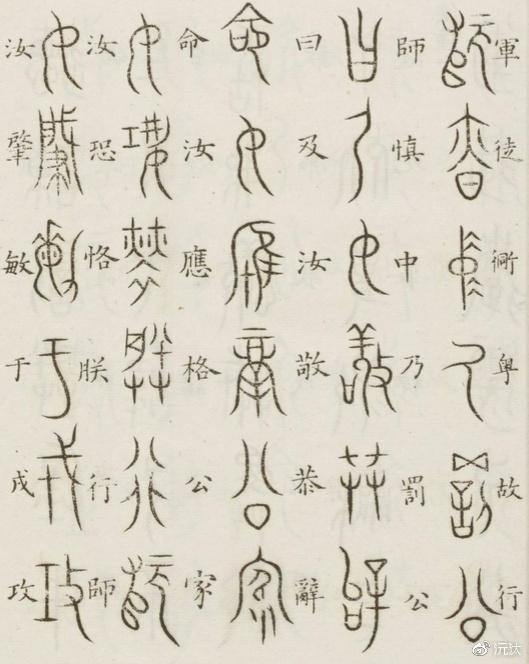 軍徒粤故行
師慎中乃罰公
曰及汝敬恭辭
命汝應格公家
汝恐恪朕行師
汝肇敏于戎攻